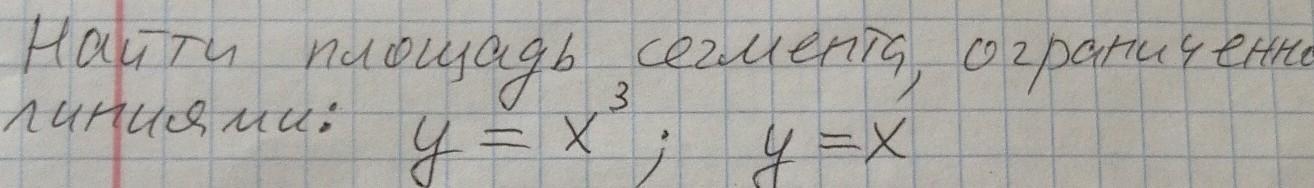 Найти площадь сегмента, ограниченно
линиями: y = x³ ; y = x